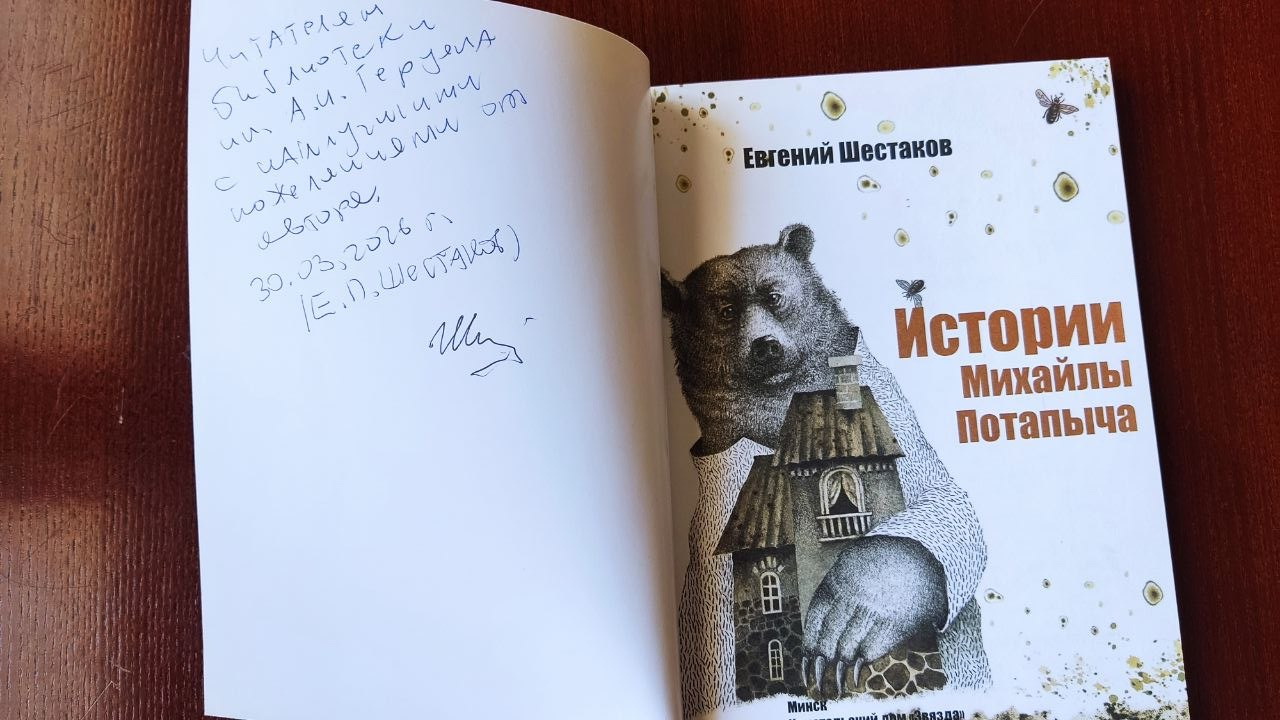 Читателям
библиотеки
им. А.И. Герцена
с наилучшими
пожеланиями от
автора.
30.03.2026 г.
/Е.П. Шестаков/
Евгений Шестаков
Истории
Михайлы
Потапыча
Минск
Издательский дом «Звязда»